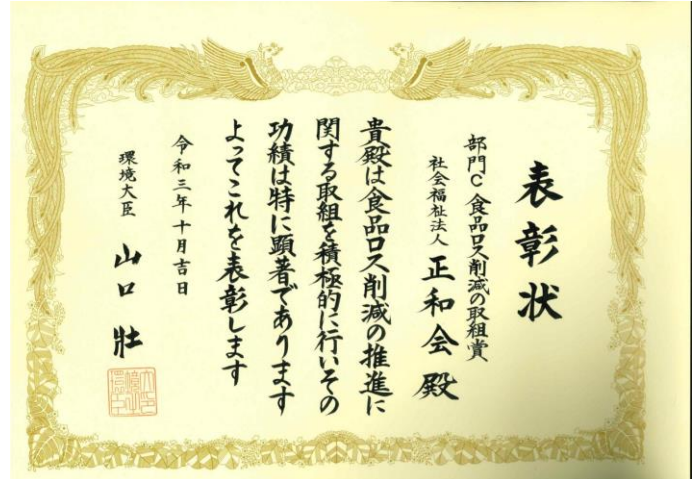 表彰状
部門C 食品ロス削減の取組賞
社会福祉法人 正和会殿
貴殿は食品ロス削減の推進に
関する取組を積極的に行いその
功績は特に顕著であります
よってこれを表彰します
令和三年十月吉日
環境大臣 山口 壯